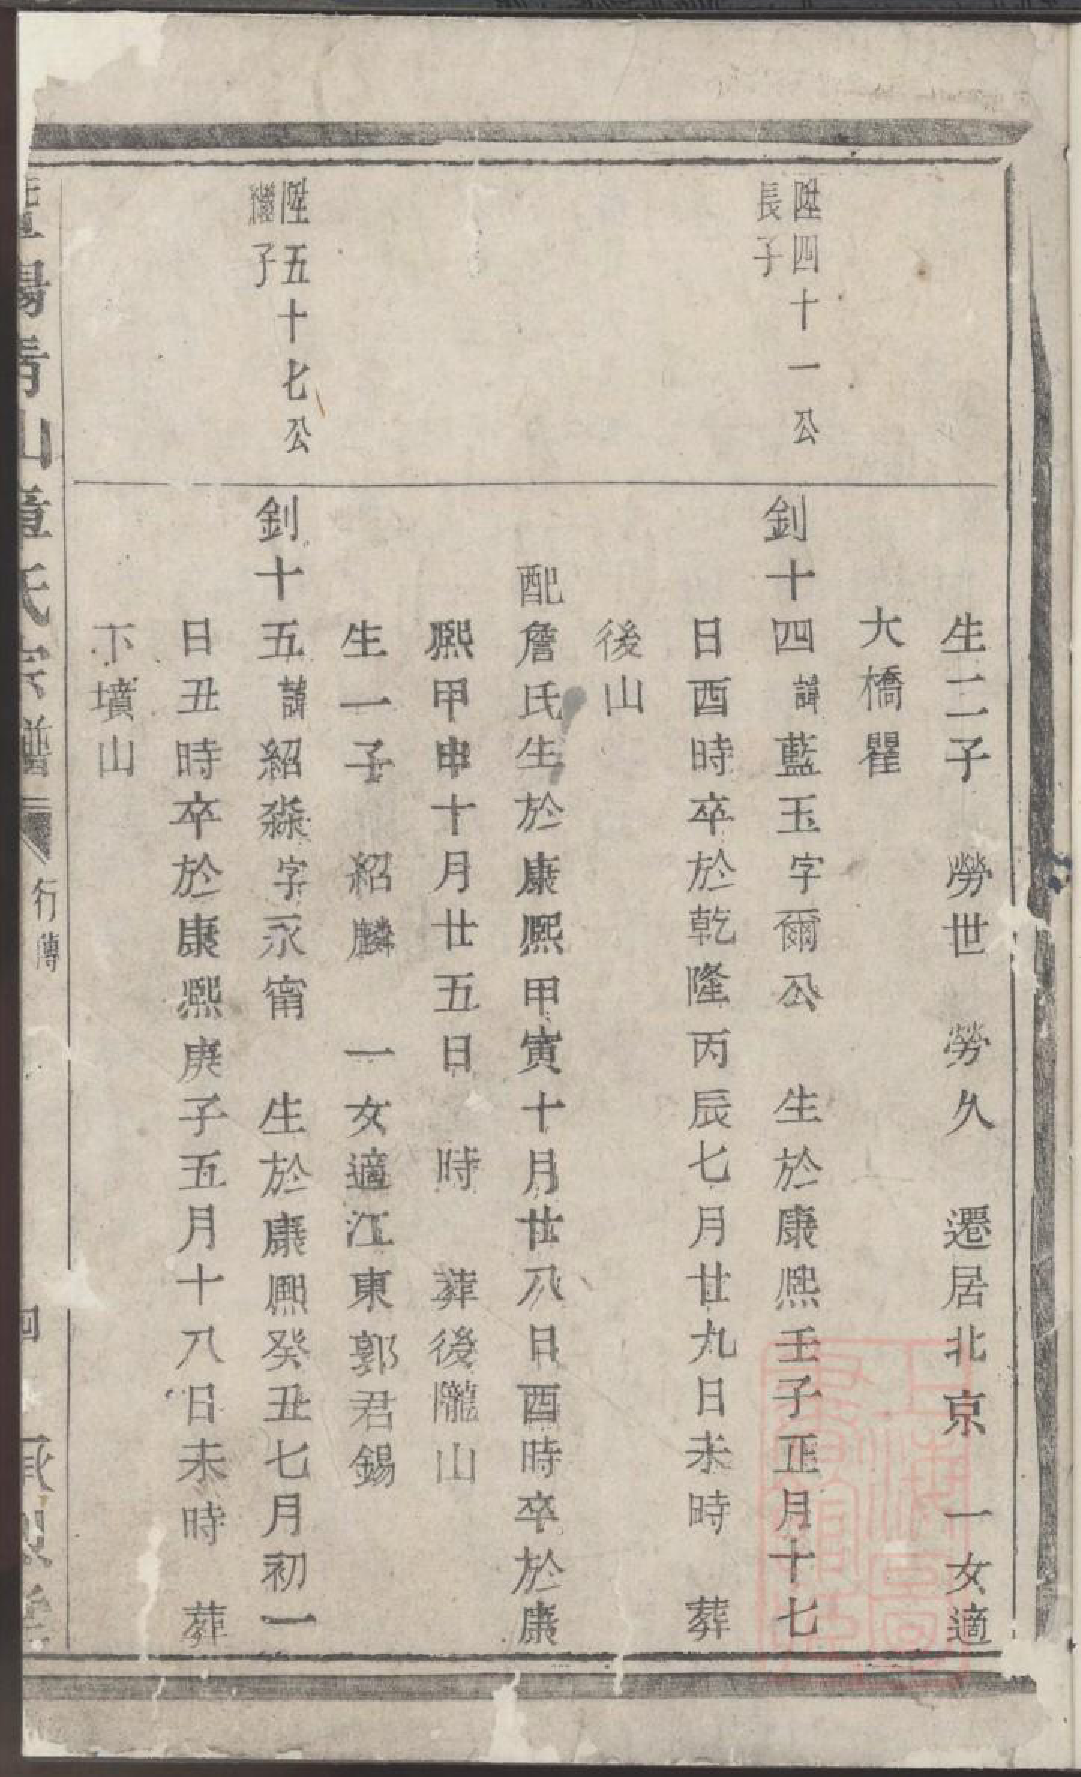 生二子　勞世　勞久　遷居北京　一女適
大橋瞿
陞四十一公
長子
釗十四諱藍玉字爾公　生於康熙壬子正月十七
日酉時卒於乾隆丙辰七月廿九日未時　葬
後山
配詹氏生於康熙甲寅十月廿八日酉時卒於康
熙甲申十月廿五日　時　葬後隴山
生一子　紹麟　一女適江東郭君錫
陞五十七公
繼子
釗十五諱紹森字永甯　生於康熙癸丑七月初一
日丑時卒於康熙庚子五月十八日未時　葬
下墳山
陽青山章氏宗譜
行傳